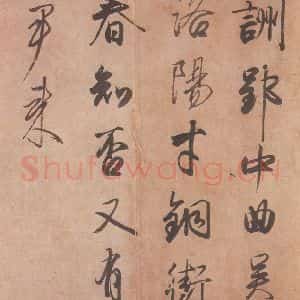 詶郢中曲吴
洛陽才銅街
春知否又有
軍来
Shufawang.cn